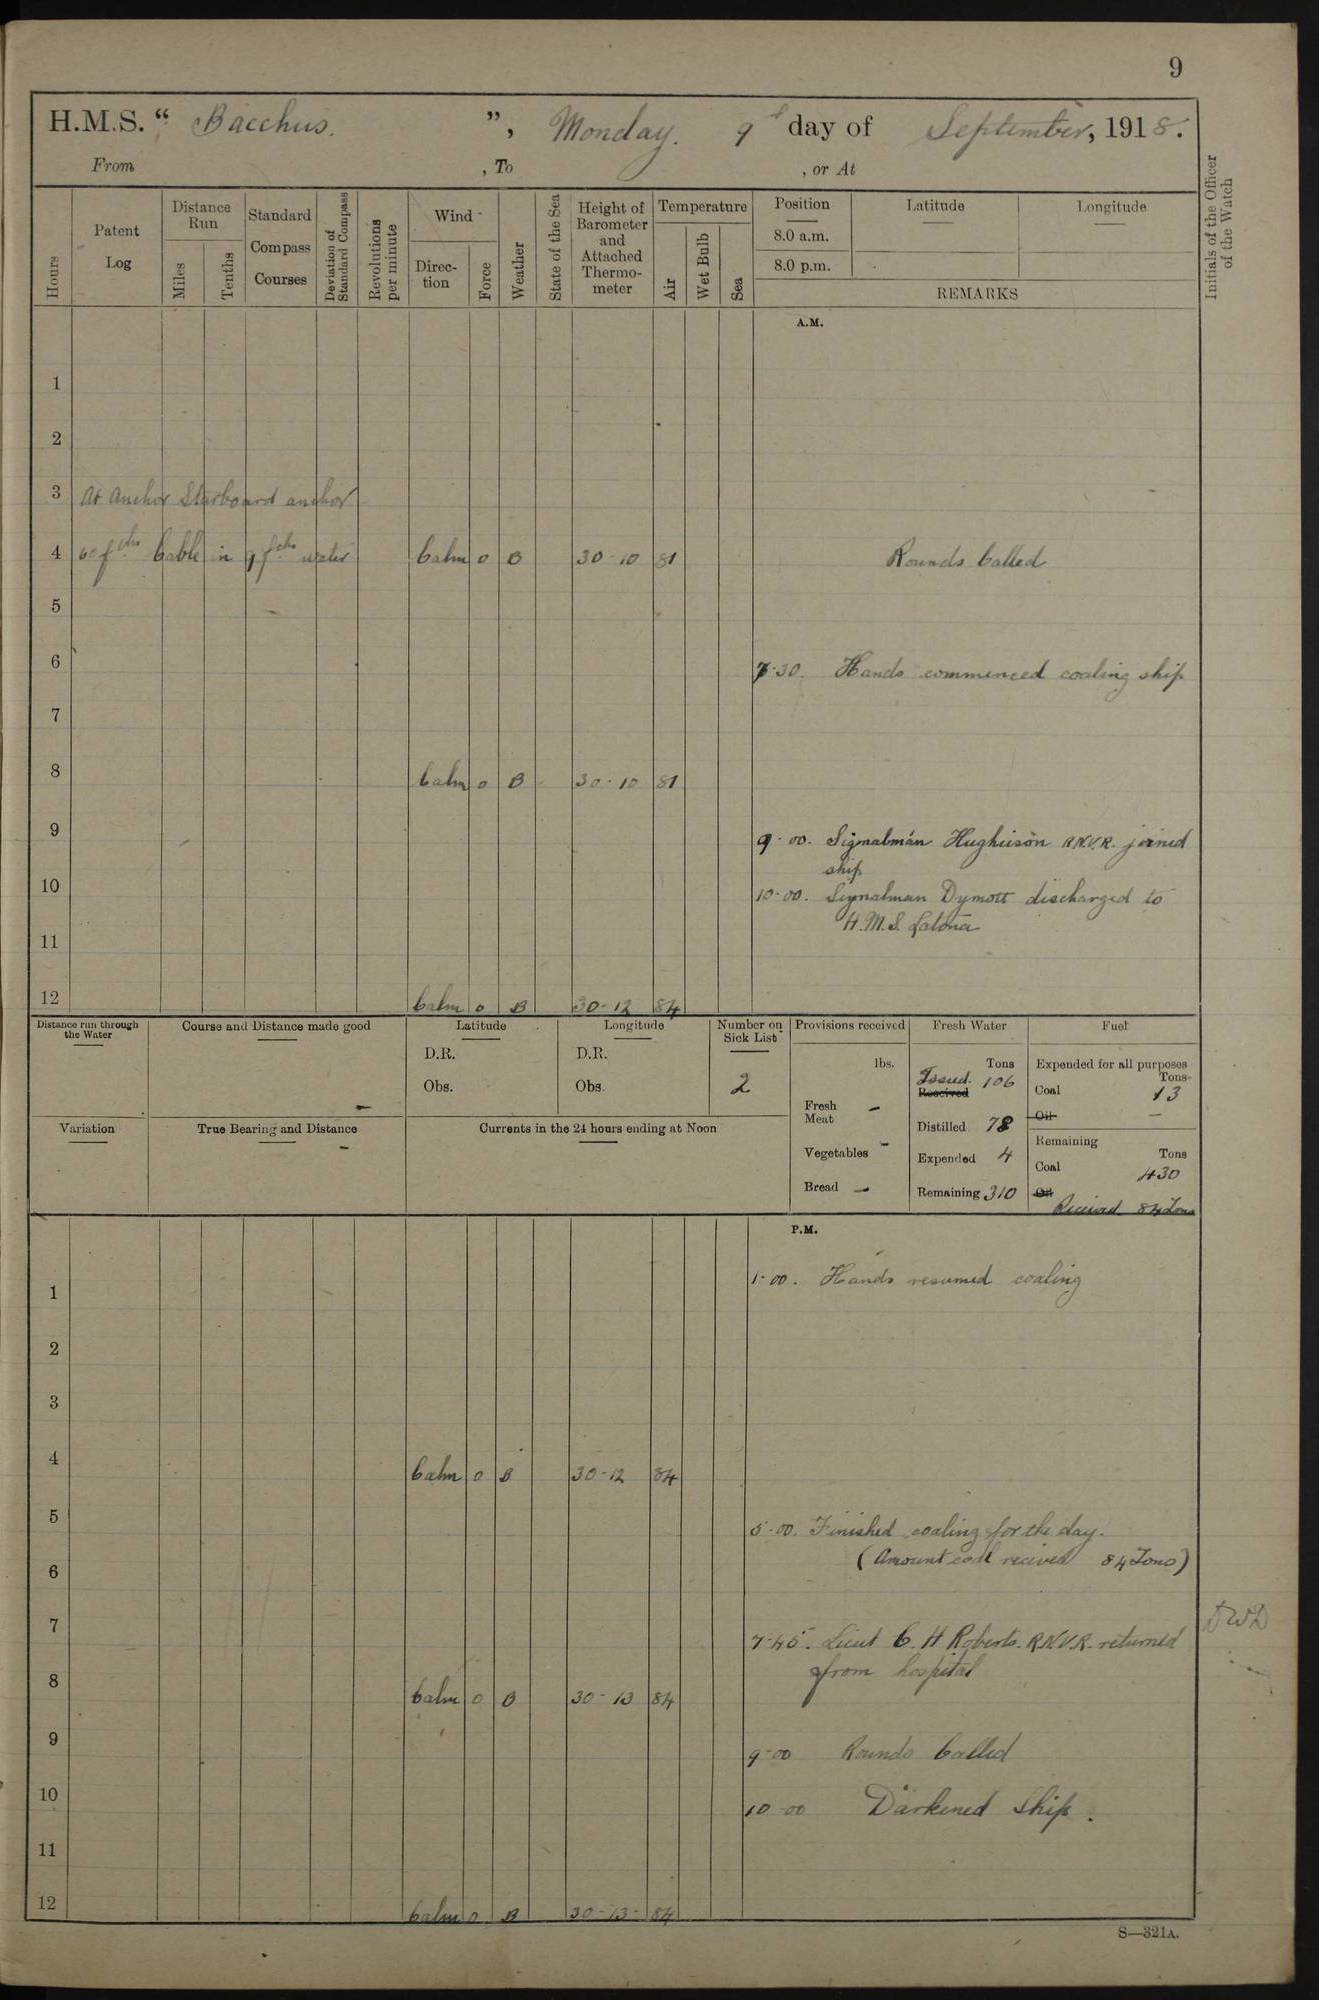 9
H.M.S. “ Bacchus. ”, Monday. 9th day of September, 1918.
From , To , or At
Hours
Patent Log
Distance Run
Miles
Tenths
Standard Compass Courses
Deviation of Standard Compass
Revolutions per minute
Wind
Direction
Force
Weather
State of the Sea
Height of Barometer and Attached Thermometer
Temperature
Air
Wet Bulb
Sea
Position
8.0 a.m.
8.0 p.m.
Latitude
Longitude
REMARKS
Initials of the Officer of the Watch
A.M.
1
2
3 At Anchor Starboard anchor
4 60 fths Cable in 9 fths water Calm 0 B 30-10 81 Rounds Called
5
6 7-30. Hands commenced coaling ship
7
8 Calm 0 B 30-10 81
9 9-00. Signalman Hughieson R.N.V.R. joined
ship
10 10-00. Signalman Dymott discharged to
H.M.S. Latona
11
12 Calm 0 B 30-12 84
Distance run through the Water
Course and Distance made good
Latitude
D.R.
Obs.
Longitude
D.R.
Obs.
Number on Sick List
2
Variation
True Bearing and Distance
Currents in the 24 hours ending at Noon
Provisions received
lbs.
Fresh Meat -
Vegetables -
Bread -
Fresh Water
Tons
Issued 106
Received
Distilled 78
Expended 4
Remaining 310
Fuel
Expended for all purposes
Tons
Coal 13
Oil —
Remaining
Tons
Coal 430
Oil
Received 84 Tons
P.M.
1 1-00. Hands resumed coaling
2
3
4 Calm 0 B 30-12 84
5 5-00. Finished coaling for the day.
(Amount coal recived 84 Tons)
6
7 7-45. Lieut C. H Roberts. R.N.V.R. returned
from hospital
8 Calm 0 B 30-13 84
9 9-00 Rounds Called
10 10-00 Darkened Ship.
11
12 Calm 0 B 30-13- 84
S—321A.